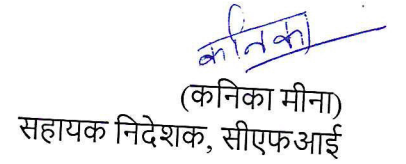 कनिका
(कनिका मीना)
सहायक निदेशक, सीएफआई